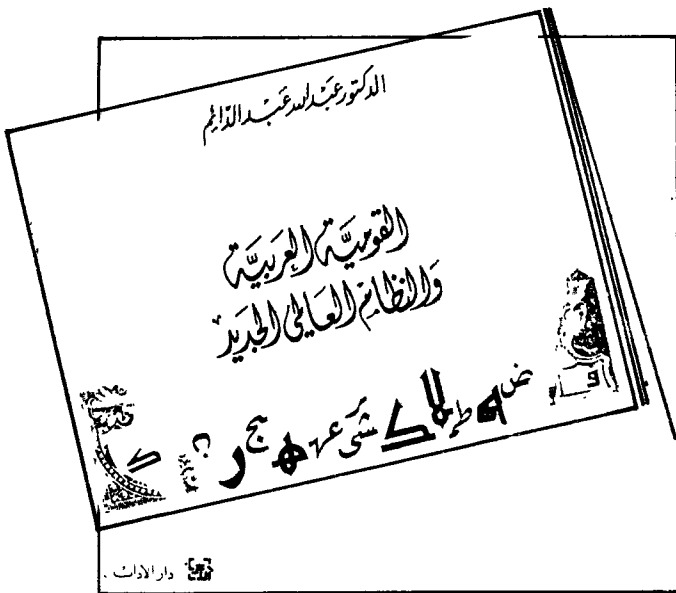 الدكتور عبد الله عبد الدائم
القومية العربية
والنظام العالمي الجديد
دار الآداب .